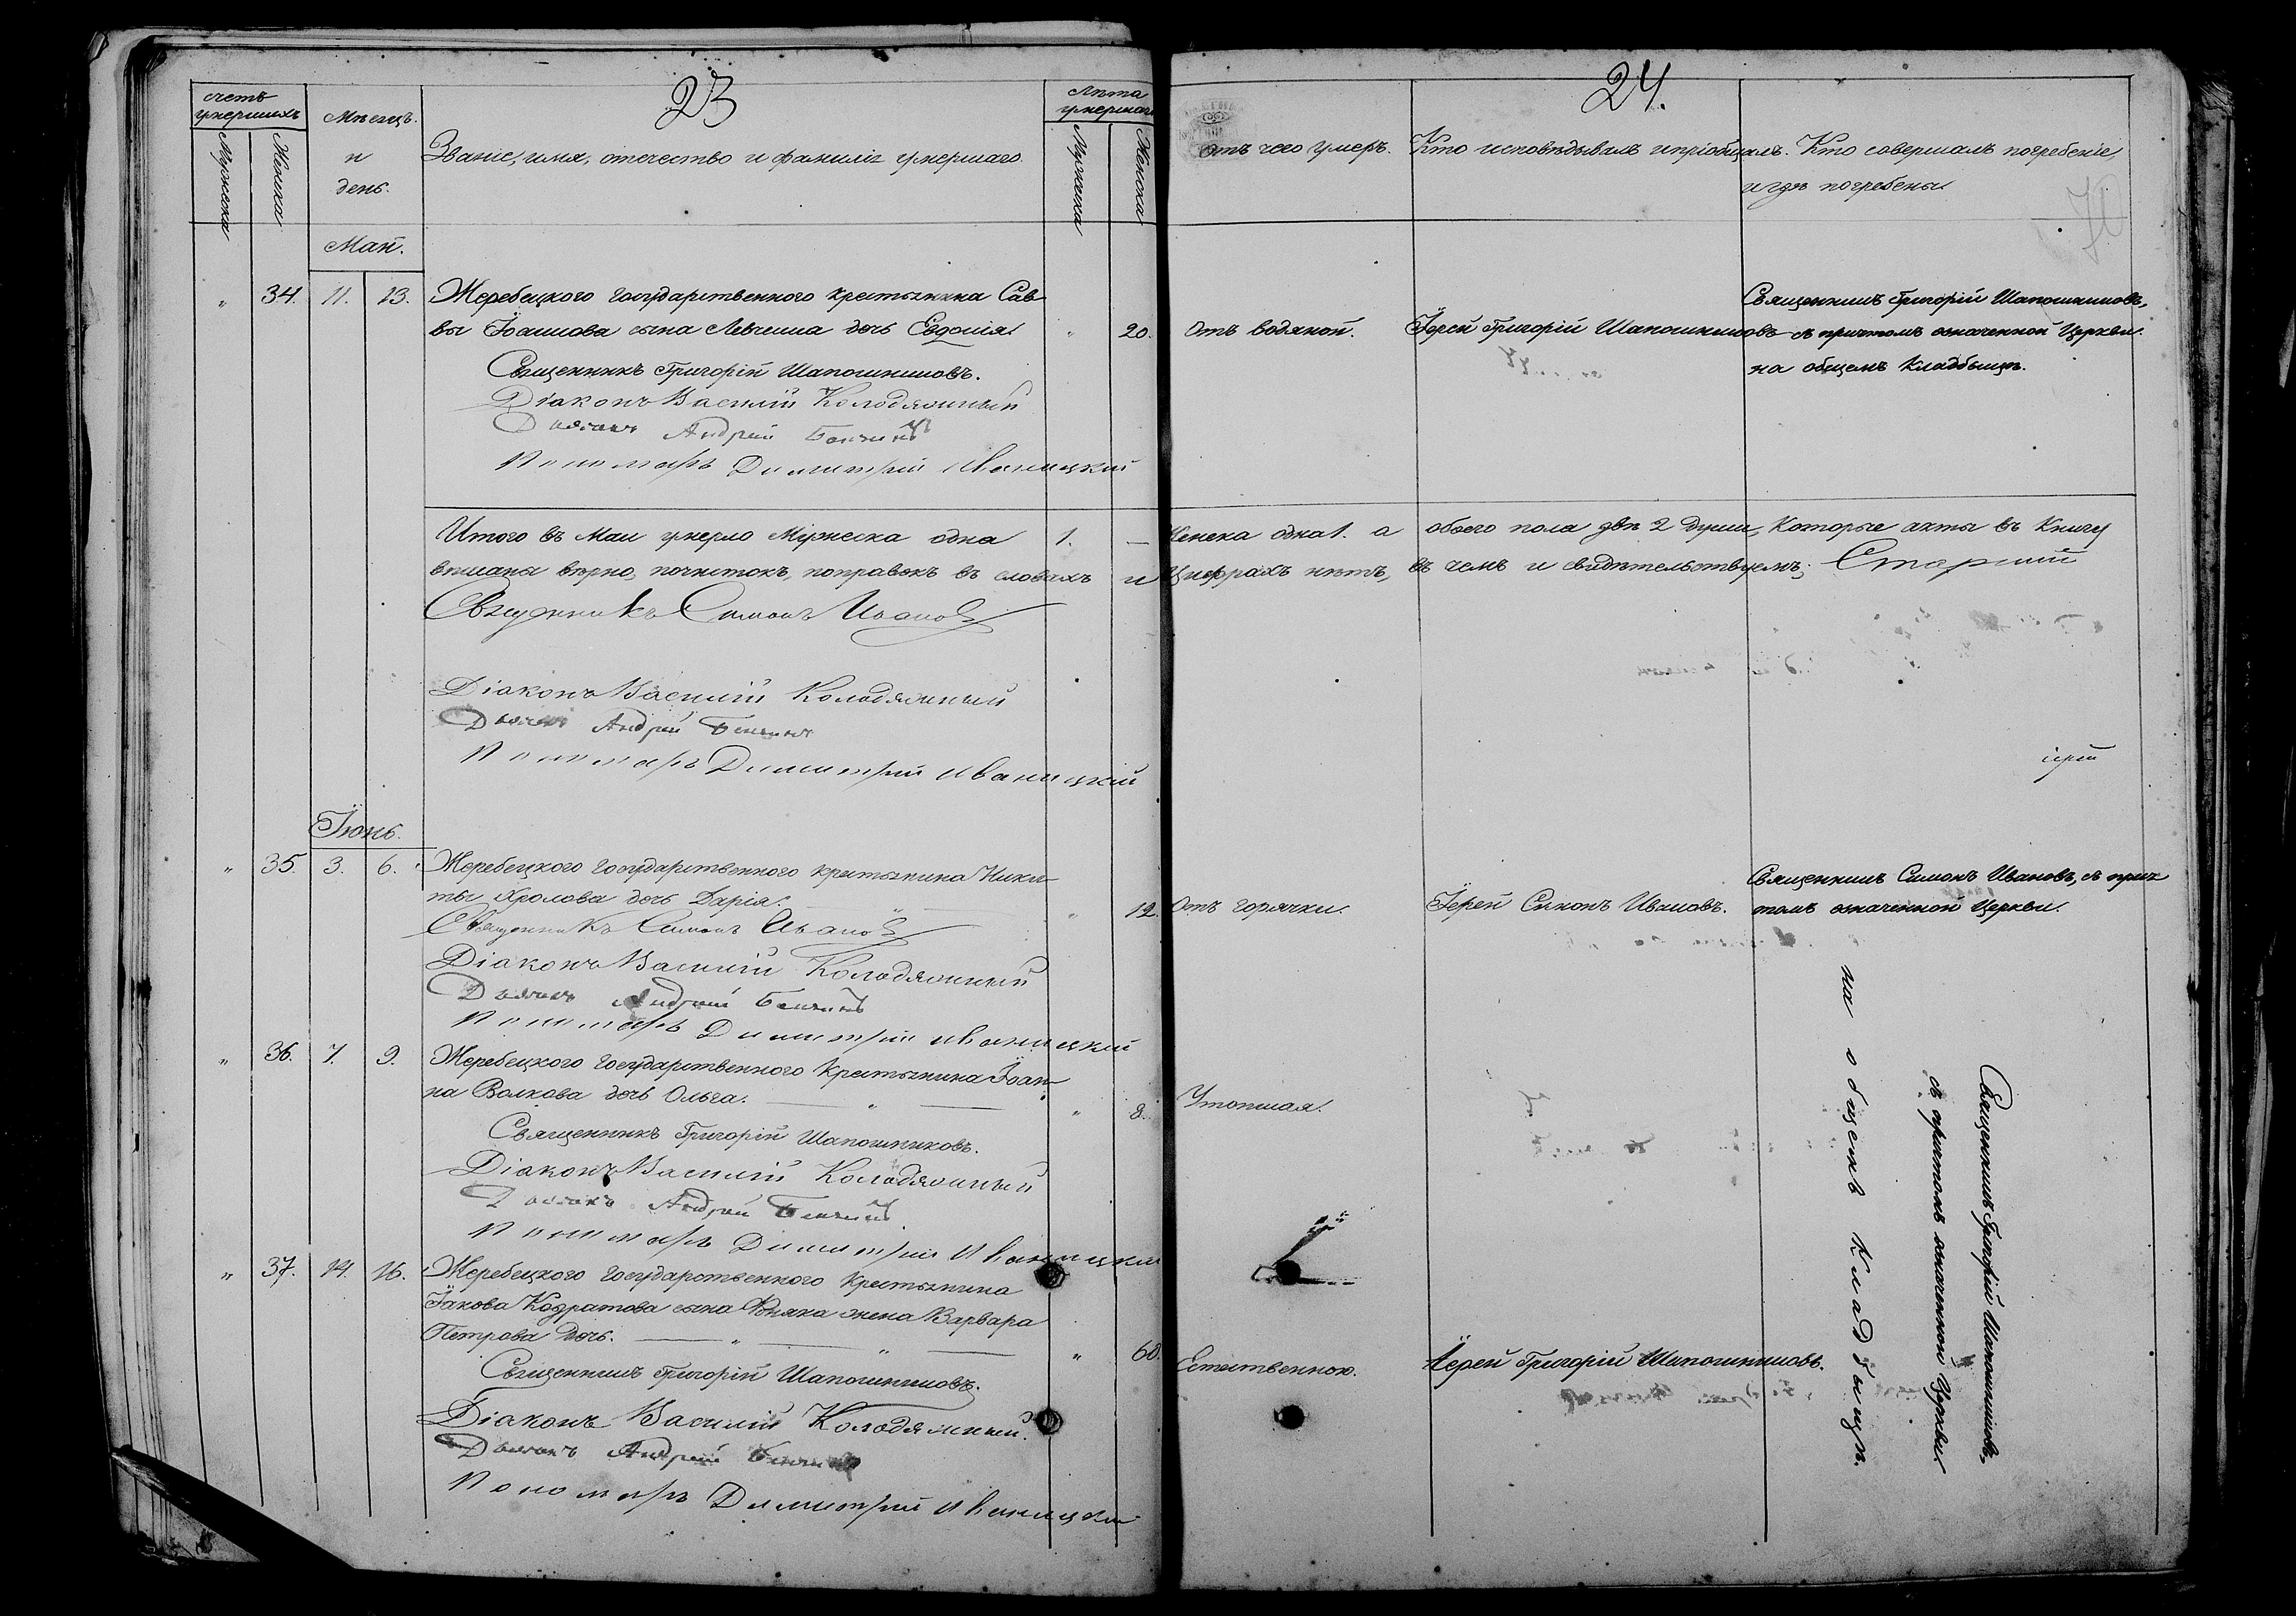 23
счетъ умершихъ
Мужеска
Женска
Мѣсяцъ и день.
Званіе, имя, отечество и фамилія умершаго.
Лѣта умершаго
Мужеска
Женска
Май.
" 34. 11. 13. Жеребецкого государственного крестьянина Сав-
вы Іоаннова сына Левченка дочь Евдокія. " 20.
Священникъ Григорій Шапошниковъ.
Діаконъ Василій Колодяжный
Дьячокъ Андрей
Пономарь Димитрій Иваницкій
Итого въ Маи умерло Мужеска одна 1. —
вписаны вѣрно, почистокъ, поправокъ въ словахъ и
Священникъ Симонъ Ивановъ
Діаконъ Василій Колодяжный
Дьячокъ Андрей
Пономарь Димитрій Иваницкій
Іюнь.
" 35. 3. 6. Жеребецкого государственного крестьянина Ники-
ты Хролова дочь Дарія. " 12.
Священникъ Симонъ Ивановъ
Діаконъ Василій Колодяжный
Дьячокъ Андрей
Пономарь Димитрій Иваницкій
" 36. 7. 9. Жеребецкого государственного Крестьянина Іоан-
на Волкова дочь Ольга. " 8.
Священникъ Григорій Шапошниковъ.
Діаконъ Василій Колодяжный
Дьячокъ Андрей
Пономарь Димитрій Иваницкій
" 37. 14. 16. Жеребецкого государственного Крестьянина
Іакова Кодратова сына жена Варвара
Петрова дочь. " 60.
Священникъ Григорій Шапошниковъ.
Діаконъ Василій Колодяжный.
Дьячокъ Андрей
Пономарь Димитрій Иваницкій
24.
Отъ чего умеръ.
Кто исповѣдывалъ и пріобщалъ.
Кто совершалъ погребеніе,
и гдѣ погребены
Отъ водяной.
Іерей Григорій Шапошниковъ
Священникъ Григорій Шапошниковъ,
съ причтомъ означенной Церкви.
на общемъ кладбыщѣ.
Женска одна 1. а обоего пола двѣ 2 души, Которые акты въ Книгу
Цифрахъ нѣтъ, въ чемъ и свидѣтельствуемъ; Старшій
іерей
Отъ горячки.
Іерей Симонъ Ивановъ.
Священникъ Симонъ Ивановъ, съ прич
томъ означенной Церкви.
на общемъ Кладбыщѣ.
Утопшая.
Священникъ Григорій Шапошниковъ,
съ причтомъ означенной Церкви.
Естественною.
Іерей Григорій Шапошниковъ.